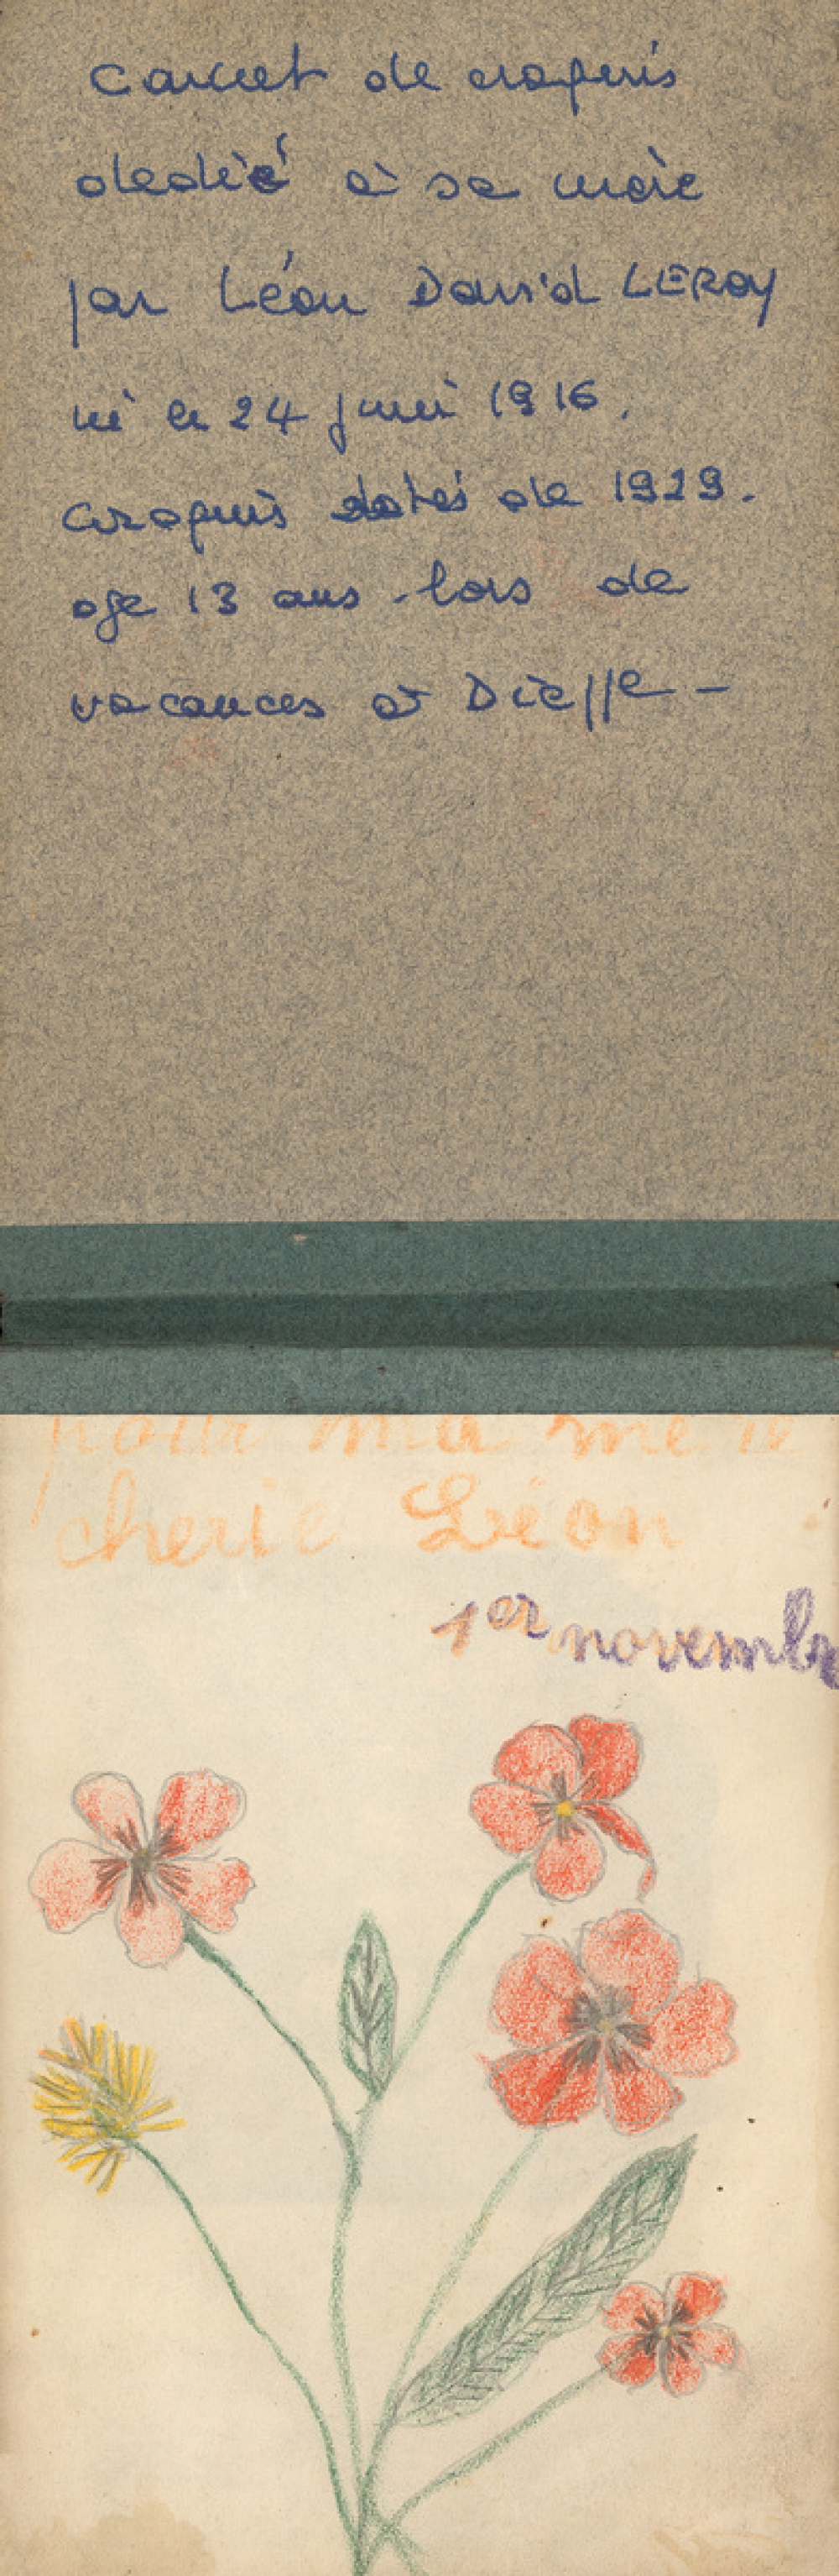 Carnet de croquis
dédié à sa mère
par Léon David LEROY
né le 24 juin 1916.
Croquis datés de 1929.
age 13 ans - lors de
vacances à Dieppe -
pour ma mère
cherie Léon
1er novembr